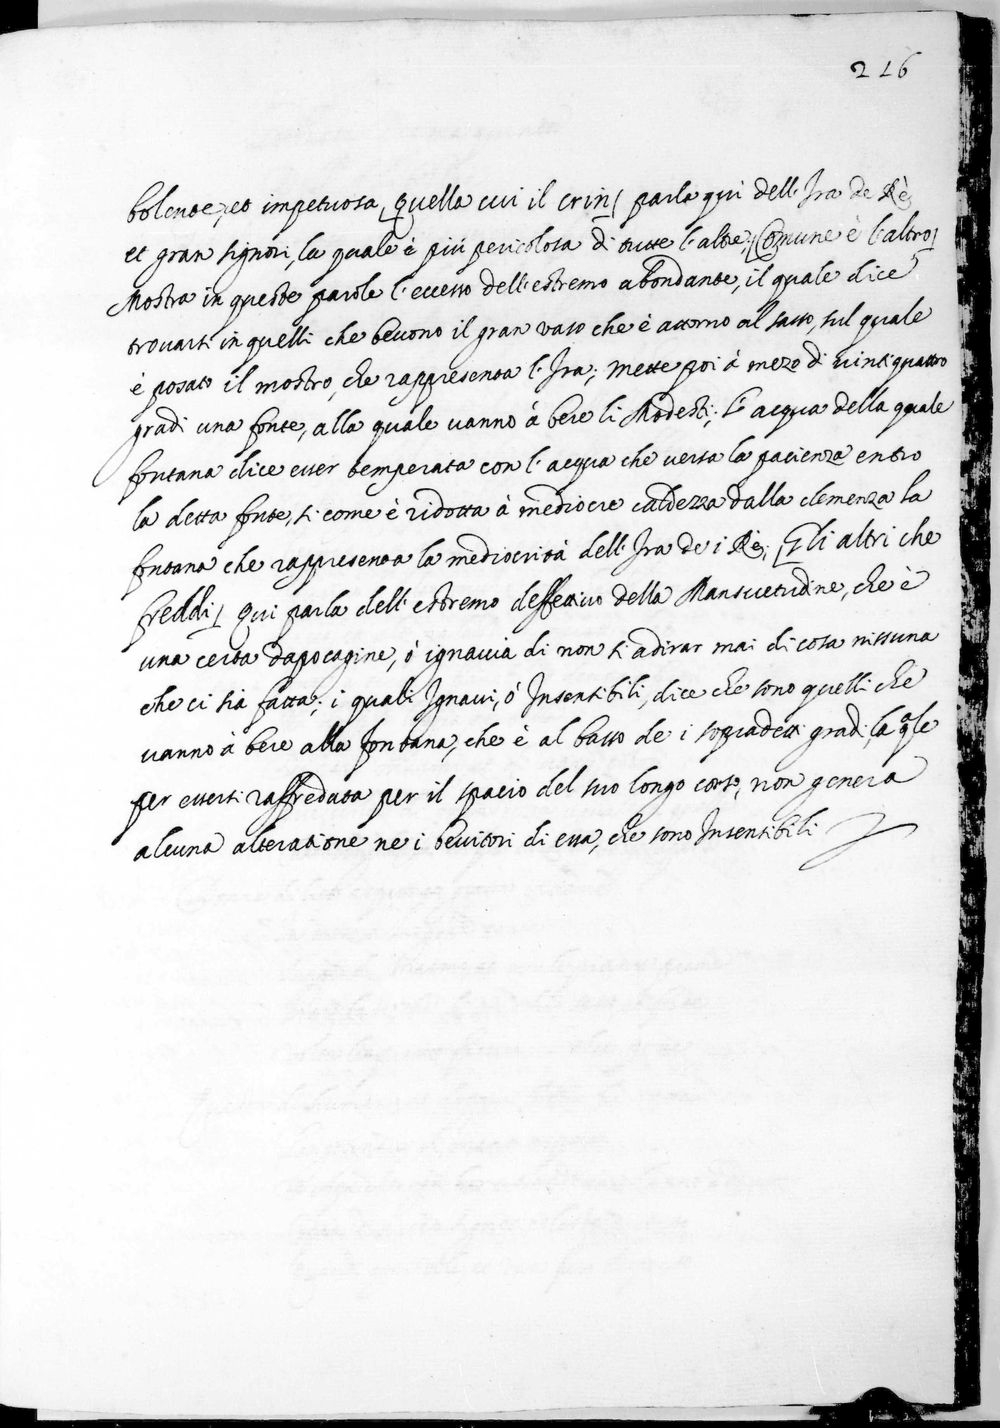 216
bolente, et impetuosa, [Quella cui il crin] parla qui dell'Ira de Rè,
et gran signori, la quale è più pericolosa di tutte l'altre; [Comune è l'altro]
Mostra in queste parole l'eccesso dell'estremo abondante, il quale dice
trovarsi in quelli che bevono il gran vaso che è attorno al sasso, sul quale
è posato il mostro, che rappresenta l'Ira; mette poi à mezo di vintiquattro
gradi una fonte, alla quale vanno à bere li Modesti; l'acqua della quale
fontana dice esser temperata con l'acqua che versa la pacienza entro
la detta fonte, si come è ridotta à mediocre caldezza dalla clemenza la
fontana che rappresenta la mediocrità dell'Ira de i Rè; [Gli altri che
freddi] Qui parla dell'estremo deffettivo della Mansuetudine, che è
una certa dapocagine, ò ignavia di non si adirar mai di cosa nissuna
che ci sia fatta; i quali Ignavi, ò Insensibili, dice che sono quelli che
vanno à bere alla fontana, che è al basso de i sopradetti gradi, la qle
per essersi raffredata per il spacio del suo longo corso, non genera
alcuna alteratione ne i bevitori di essa, che sono Insensibili